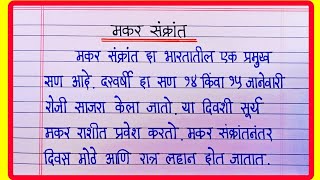 मकर संक्रांत
मकर संक्रांत हा भारतातील एक प्रमुख
सण आहे. दरवर्षी हा सण १४ किंवा १५ जानेवारी
रोजी साजरा केला जातो. या दिवशी सूर्य
मकर राशीत प्रवेश करतो. मकर संक्रांतनंतर
दिवस मोठे आणि रात्र लहान होत जातात.